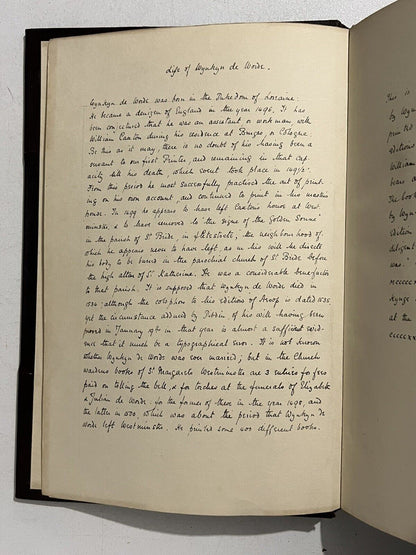 Life of Wynkyn de Worde.
Wynkyn de Worde was born in the Dukedom of Lorraine.
He became a denizen of England in the year 1496. It has
been conjectured that he was an assistant or workman with
William Caxton during his residence at Bruges, or Cologne.
Be this as it may, there is no doubt of his having been a
servant to our first Printer, and remaining in that cap-
acity till his death, which event took place in 1491/2.
From this period he most successfully practised the art of print-
ing on his own account, and continued to print in his masters
house. In 1499 he appears to have left Caxton's house at West-
minster, & to have removed to "the signs of the Golden Sonne"
in the parish of St Bride, in Fletestrete, the neighbourhood of
which he appears never to have left, as in his will he directs
his body to be buried in the parochial church of St Bride before
the high altar of St Katherine. He was a considerable benefactor
to that parish. It is supposed that Wynkyn de Worde died in
1534: although the colophon to his edition of Aesop is dated 1535
yet the circumstance adduced by Dibdin of his will having been
proved in January 19th in that year is almost a sufficient evid-
ence that it must be a typographical error. It is not known
whether Wynkyn de Worde was ever married; but in the Church
wardens books of St Margarets Westminster are 3 entries for fees
paid on tolling the bell, & for torches at the funerals of Elizabeth
& Julian de Worde: for the former of these in the year 1498, and
the latter in 1500, which was about the period that Wynkyn de
Worde left Westminster. He printed some 400 different books.
This is
by Wyn
printed
editions
William
been a
The book
by Wyn
edition
diligent
was."
at the